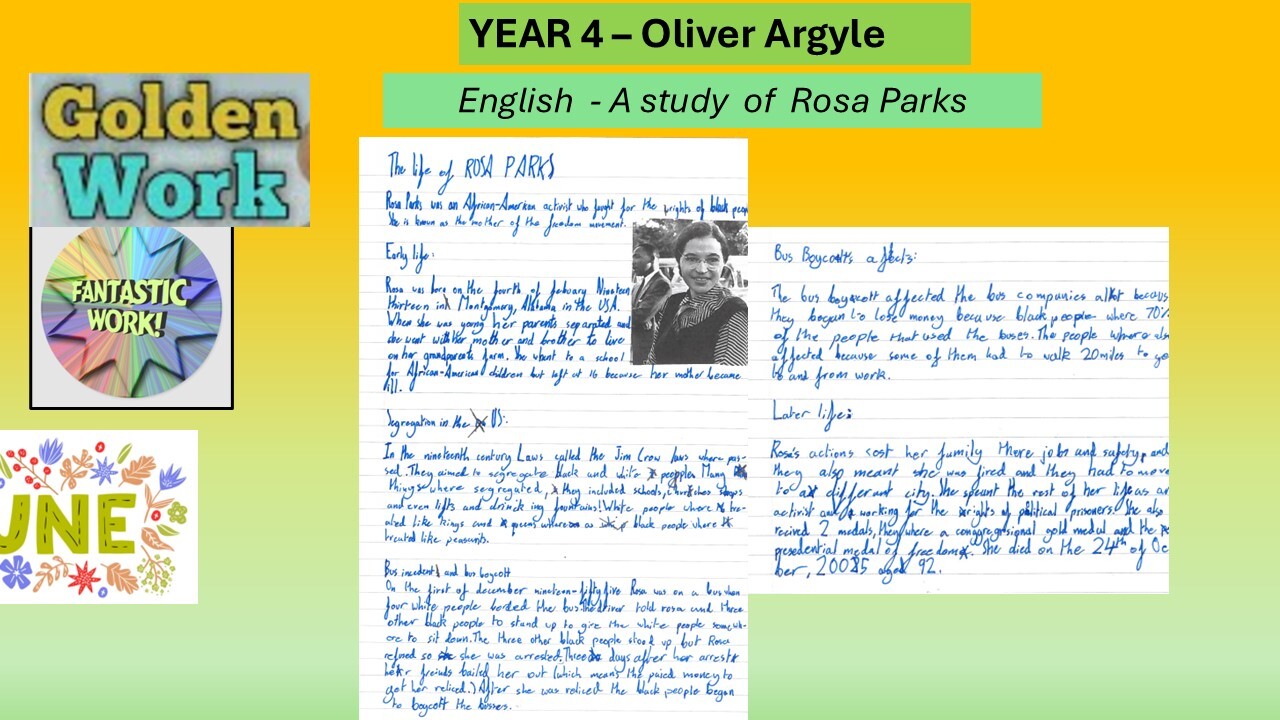 YEAR 4 – Oliver Argyle
English - A study of Rosa Parks
Golden
Work
FANTASTIC
WORK!
UNE
The life of ROSA PARKS
Rosa Parks was an African-American activist who fought for the rights of black peop
She is known as the mother of the freedom movement.
Early life:
Rosa was born on the fourth of febuary Nineteen
thirteen in Montgomery, Alabama in the USA.
When she was young her parents separated and
she went with her mother and brother to live
on her grandparents farm. She went to a school
for African-American children but left at 16 because her mother became
ill.
Segregation in the US:
In the nineteenth century Laws called the Jim Crow laws where pas-
sed. They aimed to segregate black and white people. Many
things where segregated, they included schools, churches shops
and even lifts and drinking fountains! White people where tre-
ated like kings and queens as black people where
treated like peasunts.
Bus incedent and bus boycott
On the first of december nineteen-fifty five Rosa was on a bus when
four white people borded the bus. The driver told rosa and three
other black people to stand up to give the white people somewh-
ere to sit down. The three other black people stood up but Rosa
refused so she was arrested. Three days after her arrest
her freinds bailed her out (which means the paied money to
get her reliced.) After she was reliced the black people began
to boycott the busses.
Bus Boycott's affects:
The bus boycott affected the bus companies alot becaus
they began to lose money because black people where 70%
of the people that used the buses. The people where als
affected because some of them had to walk 20 miles to go
to and from work.
Later life:
Rosa's actions cost her family there jobs and safety, and
they also meant she was fired and they had to move
to a different city. She speunt the rest of her life as an
activist and working for the rights of political prisoners. She also
recived 2 medals, they where a congragesional gold medal and the
presedential medal of freedom. She died on the 24th of Oc
ber, 2005 aged 92.